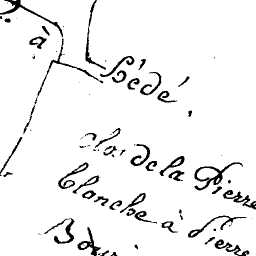 à
Bédé.
clos de la Pierre
blanche à Pierre